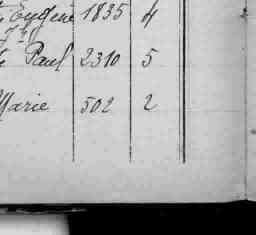 Eugène 1835 4
Paul 2310 5
Marie 502 2